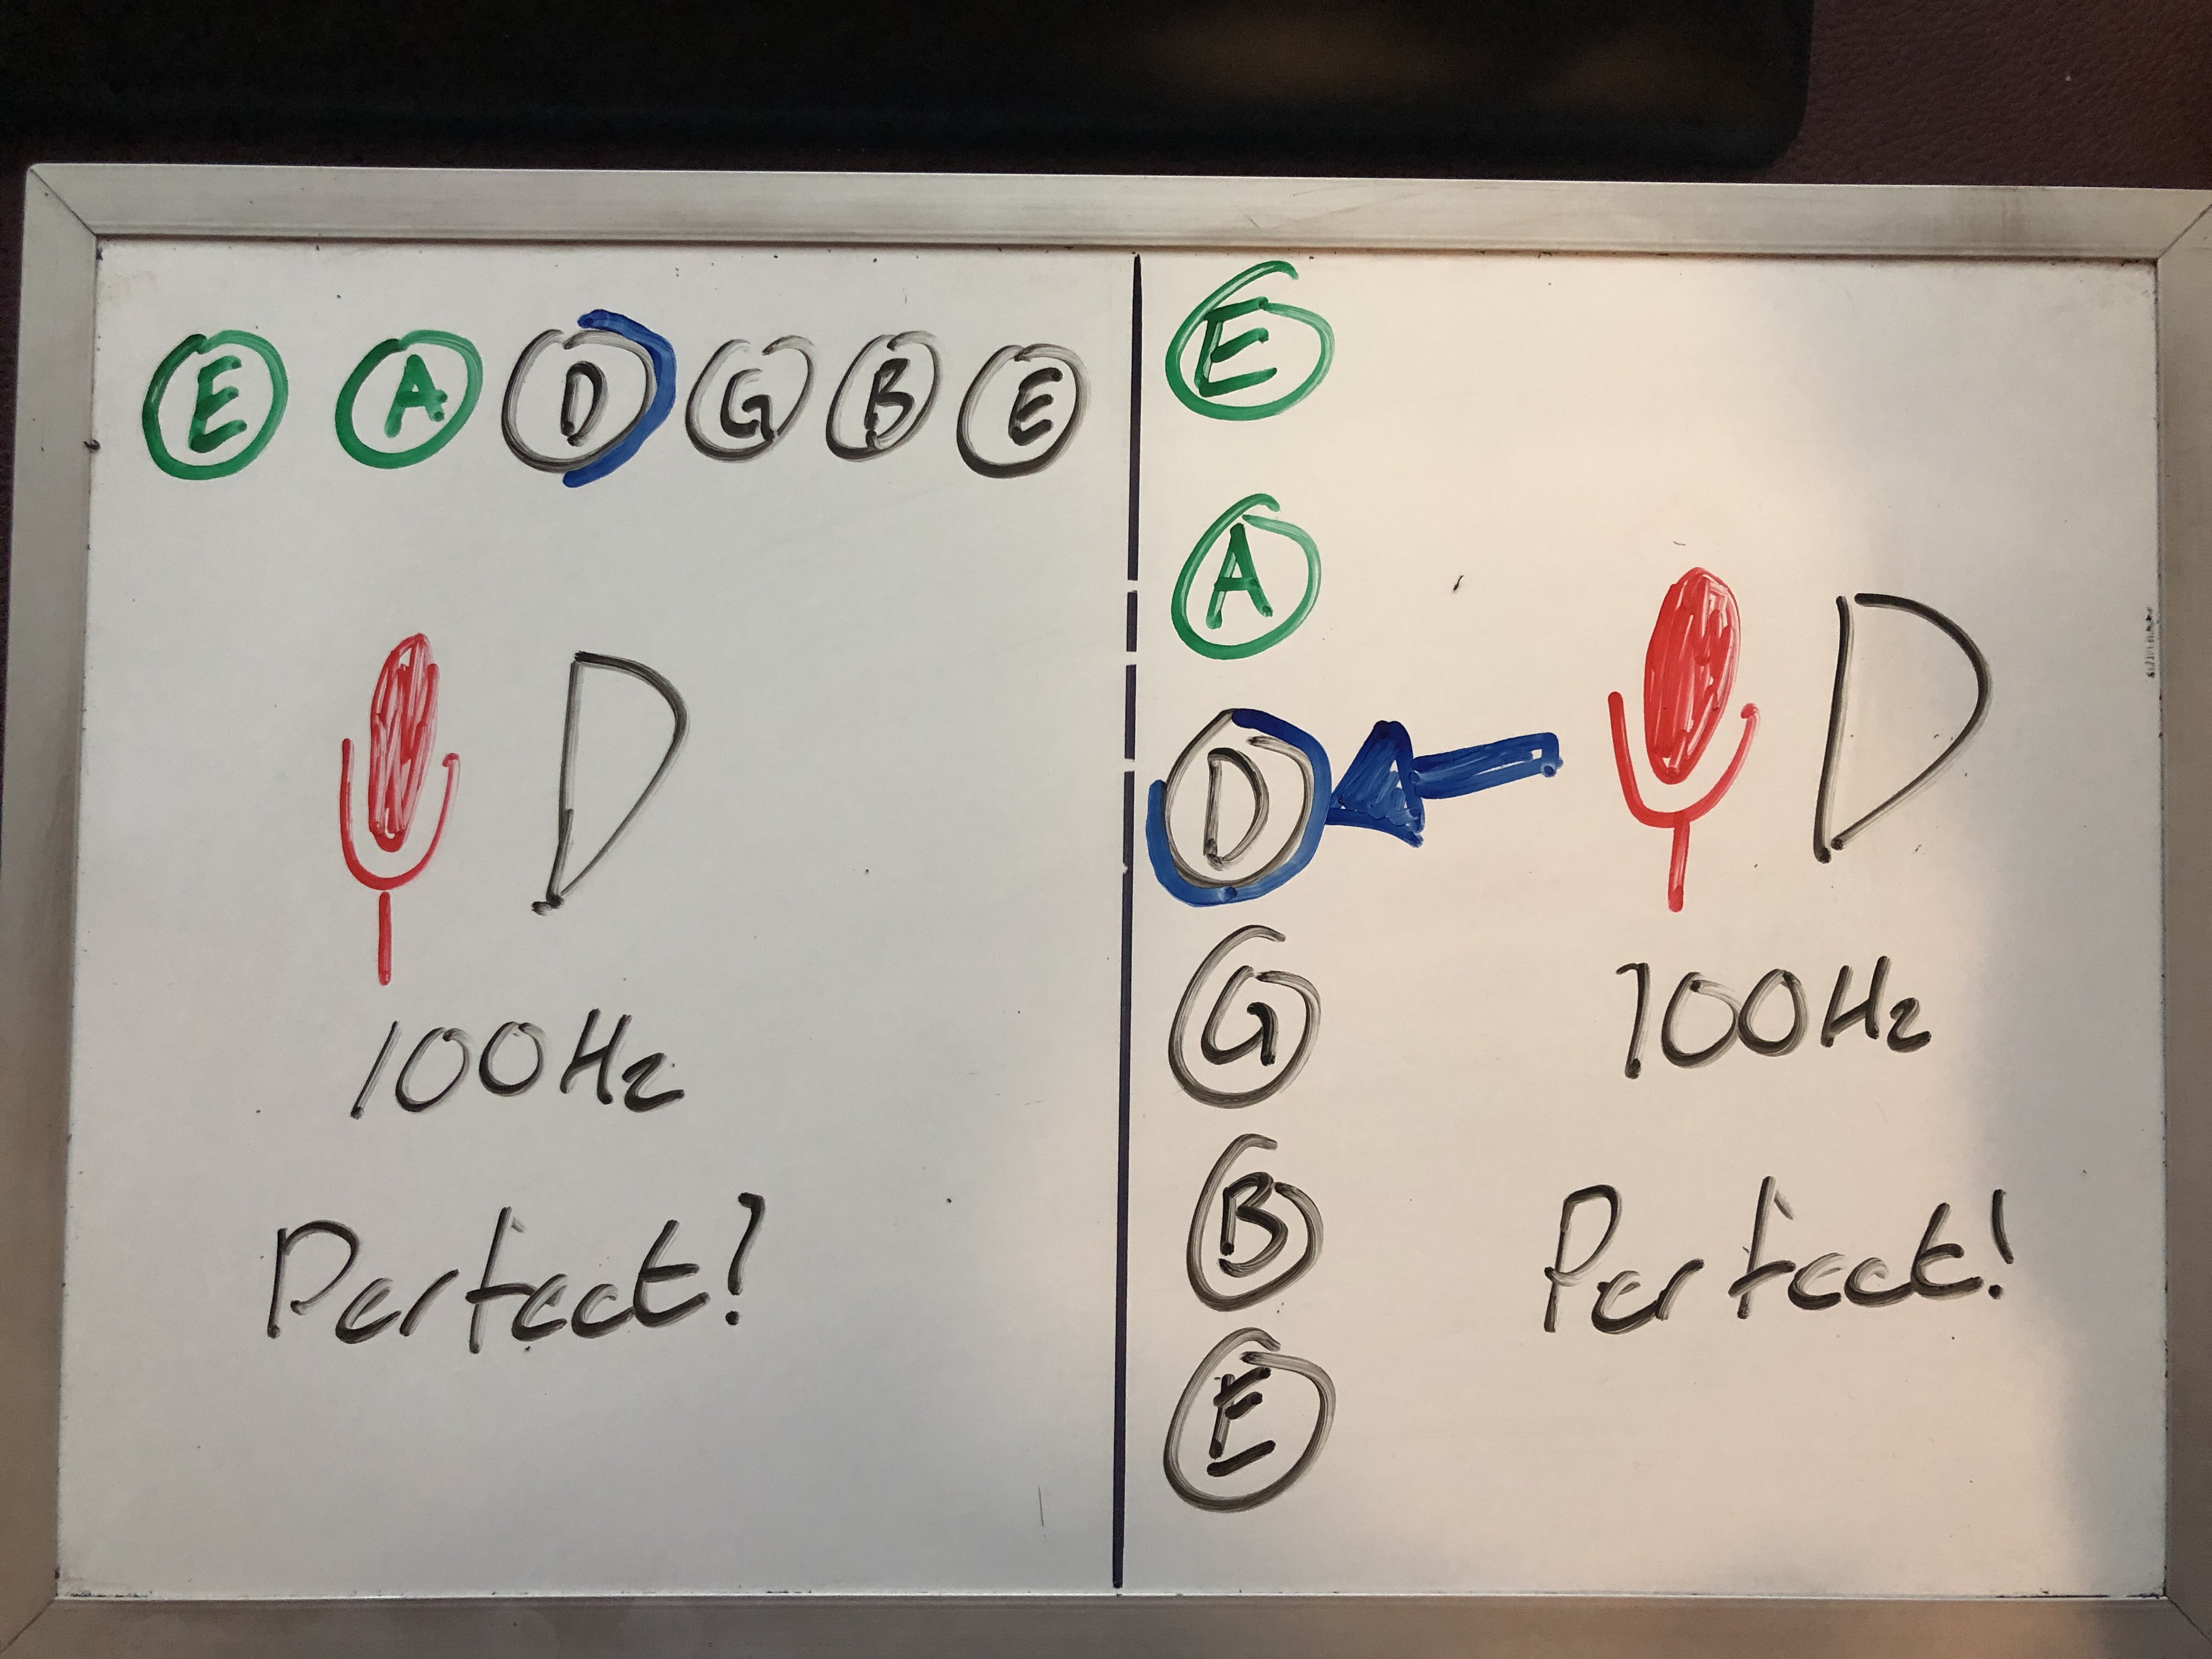 E A D G B E
D
100Hz
Perfect!
E
A
D
G
B
E
D
100Hz
Perfect!